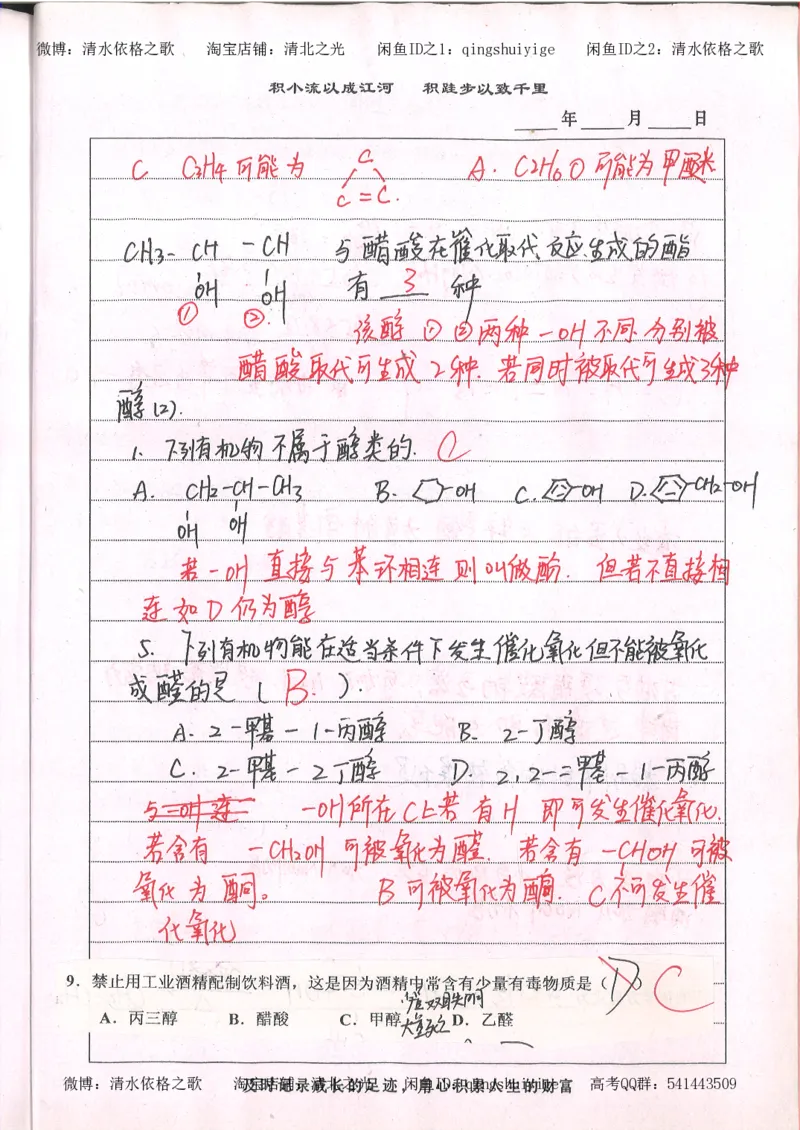 微博：清水依格之歌 淘宝店铺：清北之光 闲鱼ID之1：qingshuiyige 闲鱼ID之2：清水依格之歌
积小流以成江河 积跬步以致千里
年 月 日
C C3H4可能为 C C=C. A. C2H6O可能为甲醚
CH3-CH-CH 与醋酸在催化取代反应生成的酯
OH OH 有 3 种
① ② 该醇①②两种-OH不同 分别被
醋酸取代可生成2种. 若同时被取代可生成3种
醇(2).
1. 下列有机物不属于醇类的. C
A. CH2-CH-CH3 B. -OH C. -OH D. -CH2-OH
OH OH
若-OH直接与苯环相连则叫做酚. 但若不直接相
连如D仍为醇
5. 下列有机物能在适当条件下发生催化氧化但不能被氧化
成醛的是（ B ）.
A. 2-甲基-1-丙醇 B. 2-丁醇
C. 2-甲基-2丁醇 D. 2,2-二甲基-1-丙醇
与-OH连 -OH所在C上若有H 即可发生催化氧化.
若含有 -CH2OH可被氧化为醛. 若含有-CHOH可被
氧化为酮。 B可被氧化为酮. C不可发生催
化氧化
9．禁止用工业酒精配制饮料酒，这是因为酒精中常含有少量有毒物质是（D） C
A．丙三醇 B．醋酸 C．甲醇 D．乙醛
少量双目失明
大量致亡
及时记录成长的足迹，用心积累人生的财富
微博：清水依格之歌 淘宝店铺：清北之光 闲鱼ID：qingshuiyige 高考QQ群：541443509